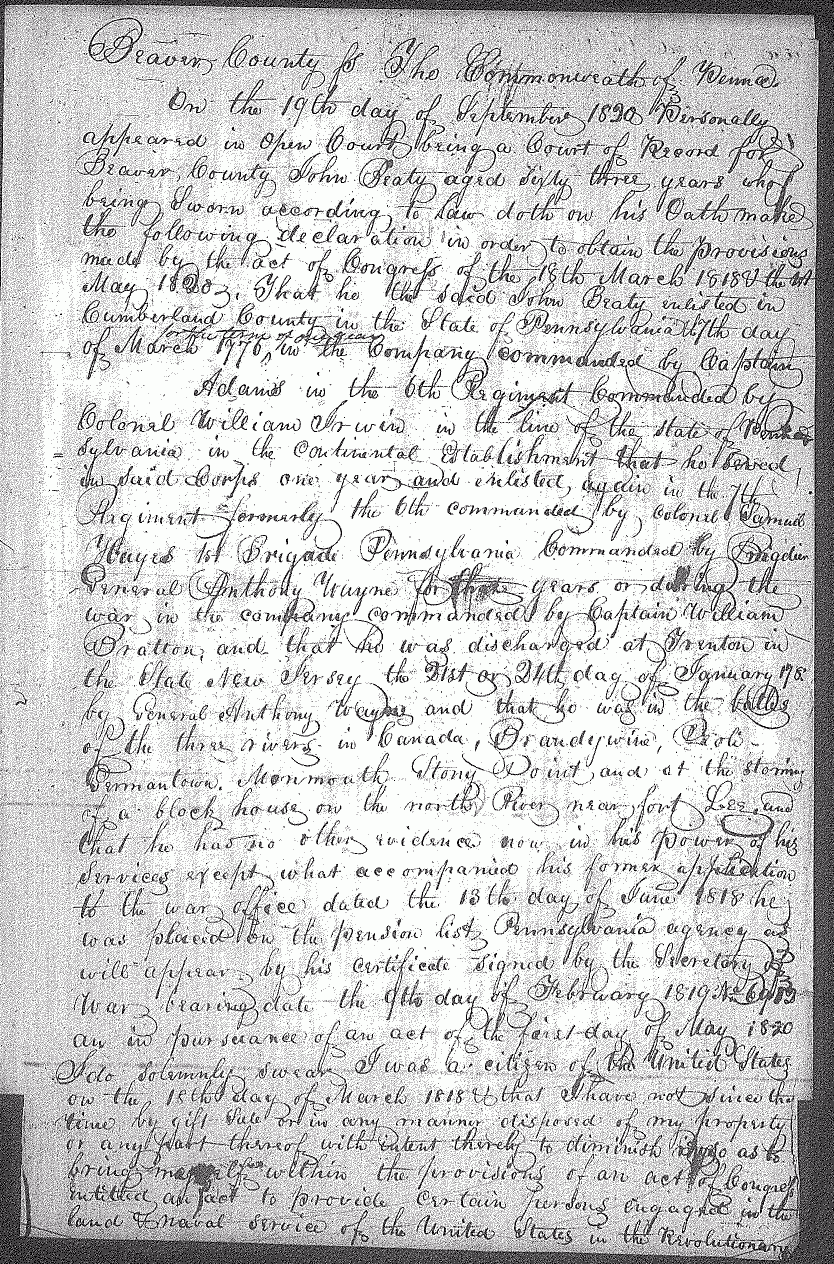 Beaver County ss The Commonwealth of Penna
On the 19th day of September 1820 Personally
appeared in Open Court being a Court of Record for
Beaver County John Beaty aged sixty three years who
being Sworn according to law doth on his Oath make
the following declaration in order to obtain the provisions
made by the act of Congress of the 18th March 1818 & the 1st
May 1820. That he the said John Beaty enlisted in
Cumberland County in the State of Pennsylvania 17th day
for the term of one year
of March 1776, in the Company commanded by Captain
Adams in the 6th Regiment Commanded by
Colonel William Irwin in the line of the state of Penn
sylvania in the Continental Establishment that he served
in said Corps one year and enlisted again in the 7th
Regiment formerly the 6th commanded by Colonel Samuel
Hayes 1st Brigade Pennsylvania Commanded by Brigadier
General Anthony Wayne for three years or during the
war in the company commanded by Captain William
Bratton, and that he was discharged at Trenton in
the State New Jersey the 21st or 24th day of January 178
by General Anthony Wayne and that he was in the battles
of the three rivers in Canada, Brandywine, Peoli
Germantown. Monmouth Stony Point and at the storming
of a block house on the north River near fort Lee and
that he has no other evidence now in his power of his
services except what accompanied his former application
to the war office dated the 13th day of June 1818 he
was placed on the pension list Pennsylvania agency as
will appear by his certificate signed by the Secretary of
War bearing date the 9th day of February 1819 No
an in pursuance of an act of the first day of May 1820
I do solemnly swear I was a citizen of the United States
on the 18th day of March 1818 & that I have not since that
time by gift Sale or in any manner disposed of my property
or any part thereof with intent thereby to diminish it so as to
bring myself within the provisions of an act of Congress
entitled an act to provide certain persons engaged in the
land & naval service of the United States in the Revolutionary